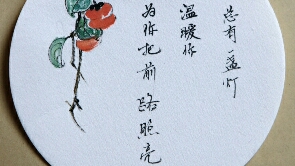 总有一盏灯
温暖你
为你把前路照亮